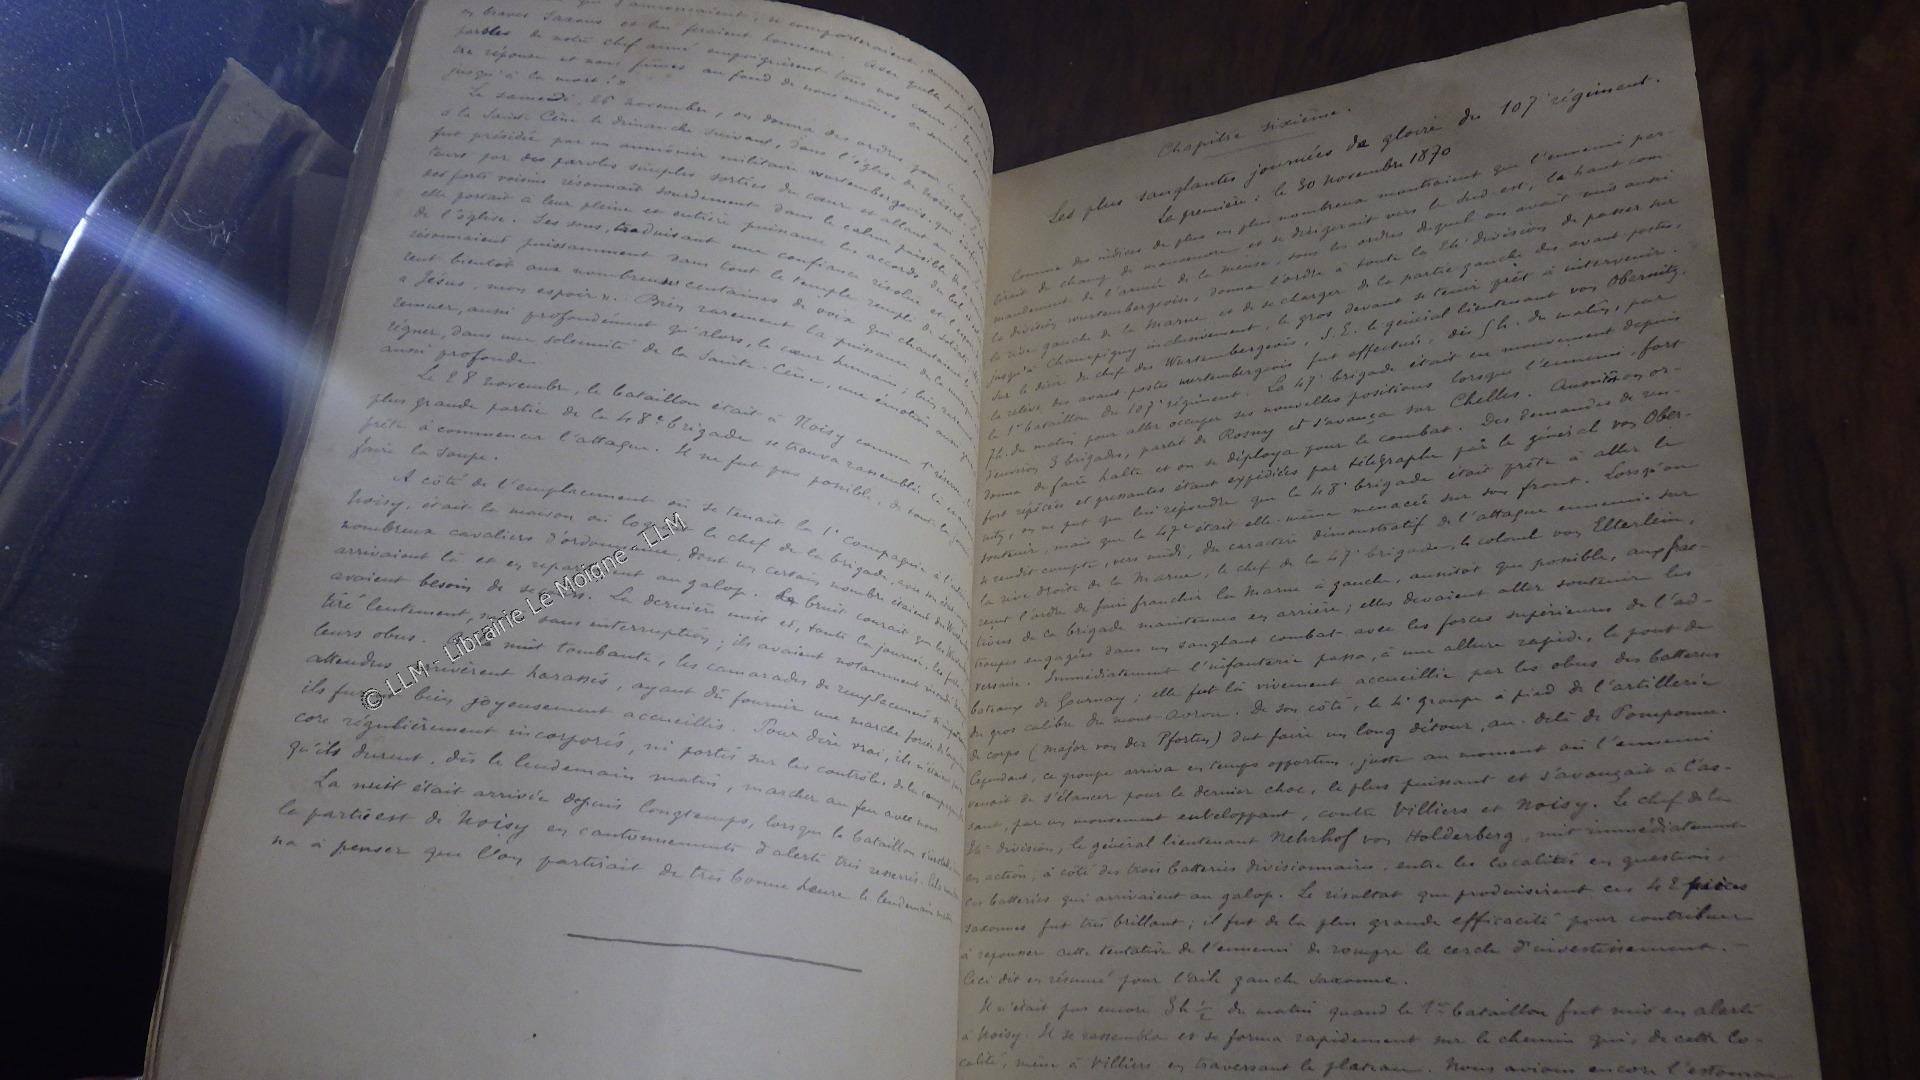 qui s'annonçaient, se comporteraient, comme
en braves Saxons et lui feraient honneur. Avec quelle
paroles de notre chef aimé empoignèrent tous nos cœurs;
tre réponse et nous fûmes au fond de nous-mêmes
jusqu'à la mort!"
Le samedi, 26 novembre, on donna des ordres pour la
à la Sainte Cène le dimanche suivant, dans l'église de Noisiel.
fut présidé par un aumônier militaire wurtembergeois, qui
teurs par des paroles simples sorties du cœur et allant au cœur.
des forts voisins résonnait sourdement dans le calme paisible
elle portait à leur pleine et entière puissance les accords du
de l'église. Les sons, traduisant une confiance résolue et
résonnaient puissamment dans tout le temple rempli de soldats
rent bientôt aux nombreuses centaines de voix qui chantaient
« Jésus, mon espoir ». Bien rarement la puissance de la musique
remuer, aussi profondément qu'alors, le cœur humain; bien rarement
régner, dans une solennité de la Sainte-Cène, une émotion aussi
aussi profonde.
Le 28 novembre, le bataillon était à Noisy comme réserve
plus grande partie de la 48e brigade se trouva rassemblée là
prête à commencer l'attaque. Il ne fut pas possible, de toute la journée
faire la soupe.
A côté de l'emplacement où se tenait la 1e compagnie, à l'entrée
Noisy, était la maison où logeait le chef de la brigade, avec son état-major
nombreux cavaliers d'ordonnance, dont un certain nombre étaient
arrivaient là et en repartaient au galop. Le bruit courait que les
avaient besoin de secours. La dernière nuit et, toute la journée, les forts
tiré lentement, mais sans interruption; ils avaient notamment
leurs obus. A la nuit tombante, les camarades de remplacement si
attendus arrivèrent harassés, ayant dû fournir une marche forcée
ils furent bien joyeusement accueillis. Pour dire vrai, ils n'étaient pas
core régulièrement incorporés, ni portés sur les contrôles de la compagnie
qu'ils durent, dès le lendemain matin, marcher au feu avec nous.
La nuit était arrivée depuis longtemps, lorsque le bataillon
la partie est de Noisy en cantonnements d'alerte très resserrés.
na à penser que l'on partirait de très bonne heure le lendemain
© LLM - Librairie Le Moigne - LLM
Chapitre sixième.
Les plus sanglantes journées de gloire du 107e régiment.
La première: le 30 novembre 1870
Comme des indices de plus en plus nombreux montraient que l'ennemi par-
tirait de champ de manœuvre et se dirigerait vers le Sud-est, le haut com-
mandement de l'armée de la Meuse, sous les ordres duquel on avait mis aussi
la division wurtembergeoise, donna l'ordre à toute la 24e division de passer sur
la rive gauche de la Marne et de se charger de la partie gauche des avant-postes,
jusqu'à Champigny inclusivement, le gros devant se tenir prêt à intervenir.
Sur le désir du chef des Wurtembergeois, S.E. le général lieutenant von Obernitz,
la relève des avant-postes wurtembergeois fut effectuée, dès 5 h. du matin, par
le 1er bataillon du 107e régiment. La 47e brigade était en mouvement depuis
7 h. du matin pour aller occuper ses nouvelles positions lorsque l'ennemi, fort
d'environ 3 brigades, partit de Rosny et s'avança sur Chelles. Aussitôt on or-
donna de faire halte et on se déploya pour le combat. Des demandes de ren-
fort répétées et pressantes étant expédiées par télégraphe par le général von Ober-
nitz, on ne put que lui répondre que la 48e brigade était prête à aller le
soutenir, mais que la 47e était elle-même menacée sur son front. Lorsqu'on
se rendit compte, vers midi, du caractère démonstratif de l'attaque ennemie sur
la rive droite de la Marne, le chef de la 47e brigade, le colonel von Elterlein,
reçut l'ordre de faire franchir la Marne à gauche, aussitôt que possible, aux frac-
tions de sa brigade maintenues en arrière; elles devaient aller soutenir les
troupes engagées dans un sanglant combat avec les forces supérieures de l'ad-
versaire. Immédiatement l'infanterie passa, à une allure rapide, le pont de
bateaux de Gournay; elle fut là vivement accueillie par les obus des batteries
du gros calibre du mont Avron. De son côté, le 4e groupe à pied de l'artillerie
de corps (major von der Pforten) dut faire un long détour, au-delà de Pomponne.
Cependant, ce groupe arriva en temps opportun, juste au moment où l'ennemi
venait de s'élancer pour le dernier choc, le plus puissant et s'avançait à l'as-
saut, par un mouvement enveloppant, contre Villiers et Noisy. Le chef de la
24e division, le général lieutenant Nehrhof von Holderberg, mit immédiatement
en action, à côté des trois batteries divisionnaires, entre les localités en question,
ces batteries qui arrivaient au galop. Le résultat que produisirent ces 42 pièces
saxonnes fut très brillant; il fut de la plus grande efficacité pour contribuer
à repousser cette tentative de l'ennemi de rompre le cercle d'investissement. —
Ceci dit en résumé pour l'aile gauche saxonne.
Il n'était pas encore 3 h ½ du matin quand le 1er bataillon fut mis en alerte
à Noisy. Il se rassembla et se forma rapidement sur le chemin qui, de cette lo-
calité, mène à Villiers en traversant le plateau. Nous avions encore l'estomac